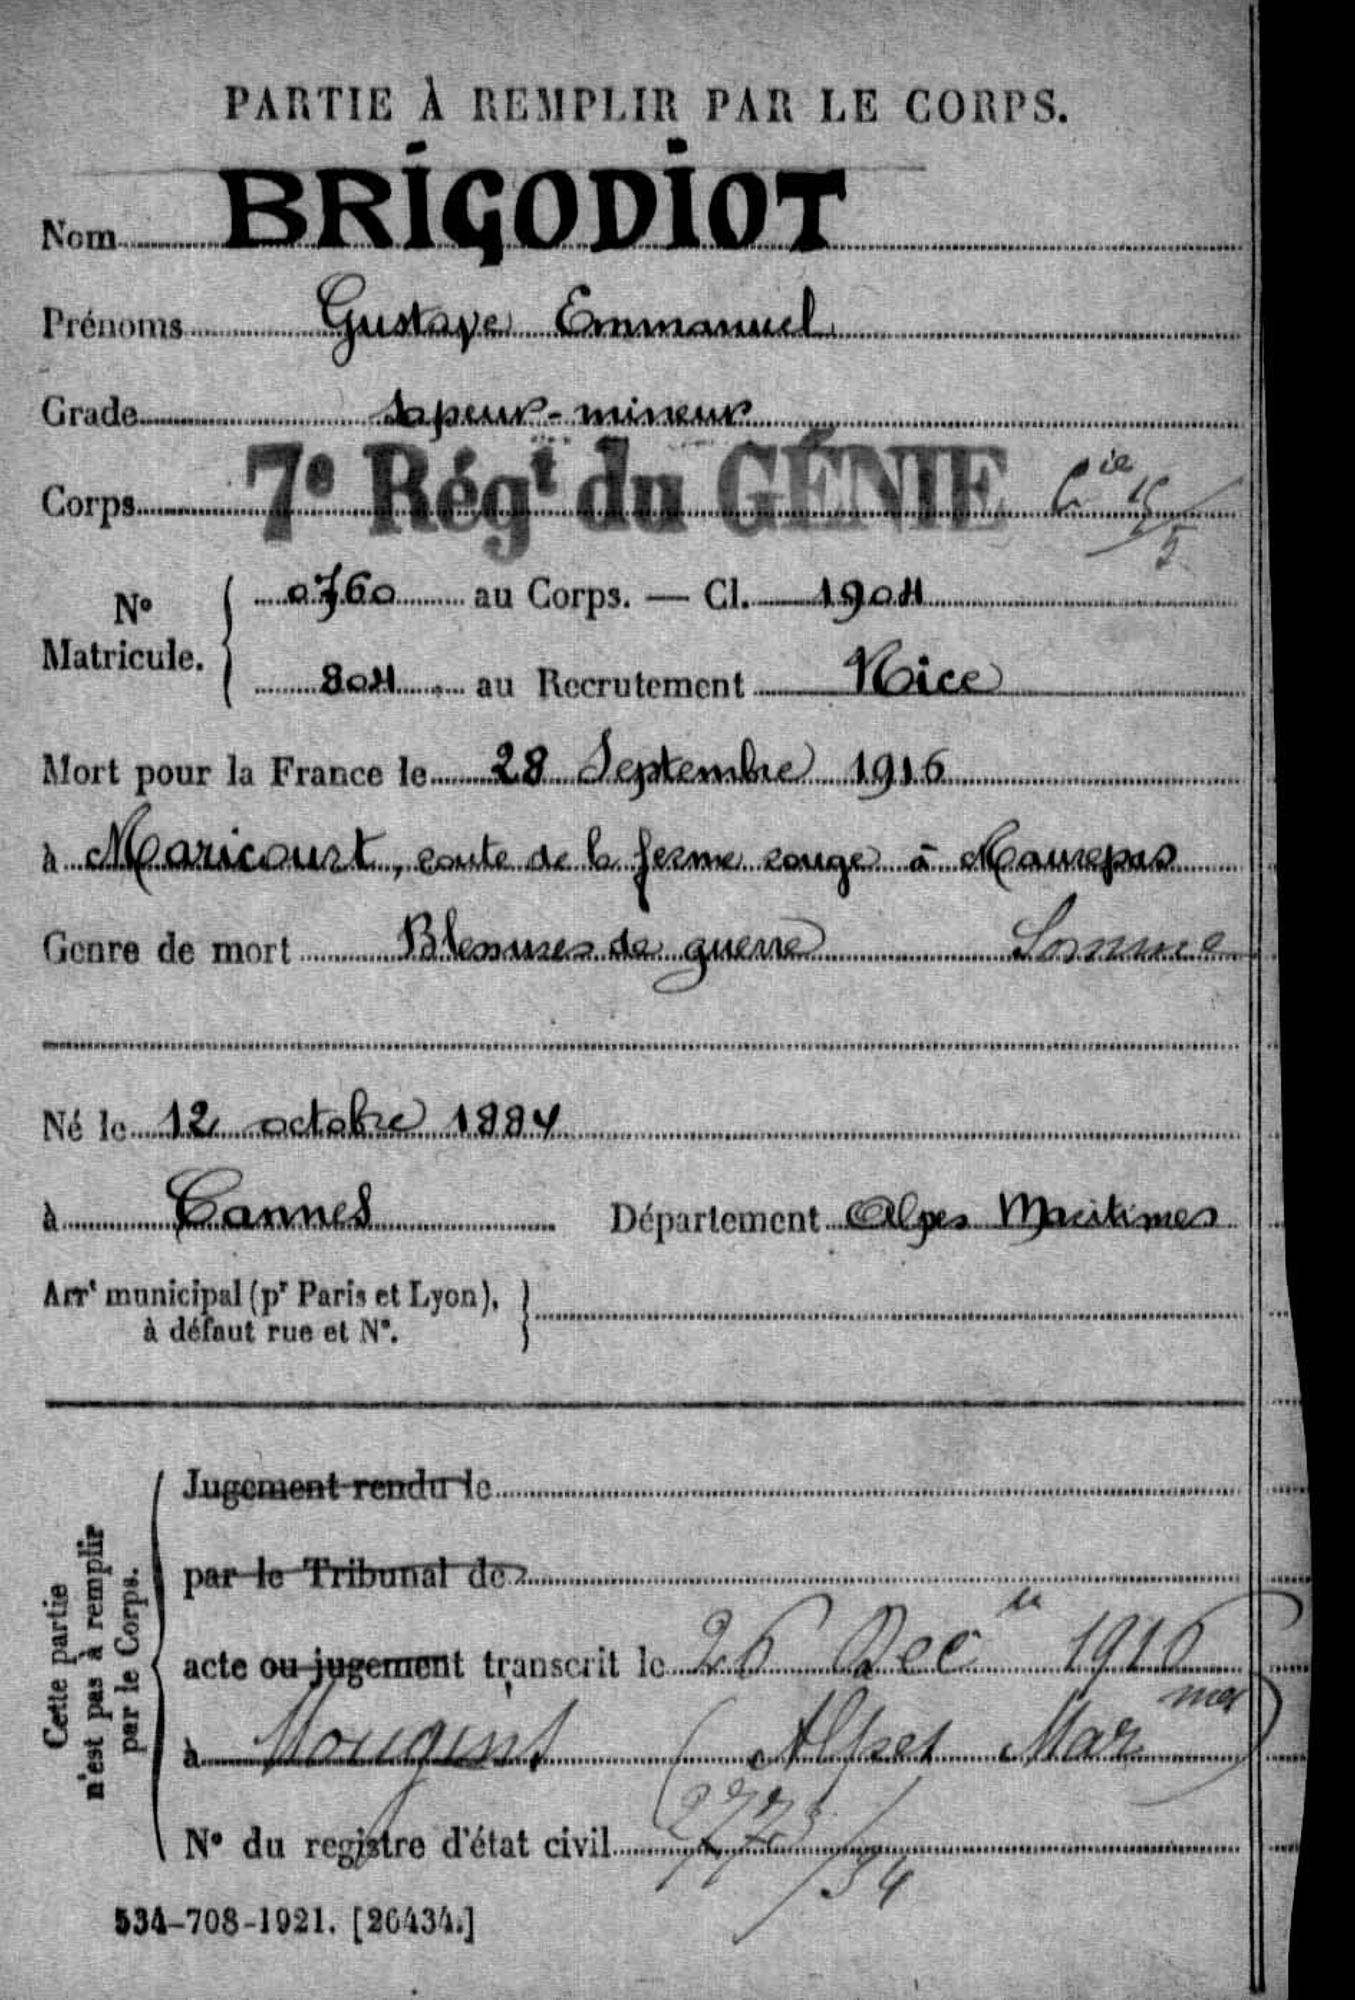 PARTIE À REMPLIR PAR LE CORPS.
Nom BRIGODIOT
Prénoms Gustave Emmanuel
Grade sapeur-mineur
Corps 7e Régt du GÉNIE Cie 15/5
No Matricule. 0760 au Corps. — Cl. 1904
804 au Recrutement Nice
Mort pour la France le 28 Septembre 1916
à Maricourt, route de la ferme rouge à Maurepas
Genre de mort Blessures de guerre Somme
Né le 12 octobre 1884
à Cannes Département Alpes Maritimes
Arrt municipal (pr Paris et Lyon),
à défaut rue et No.
Cette partie
n'est pas à remplir
par le Corps.
Jugement rendu le
par le Tribunal de
acte ou jugement transcrit le 26 Dec 1916
à Mougins (Alpes Marmes)
No du registre d'état civil 2773/34
534-708-1921. [26434.]